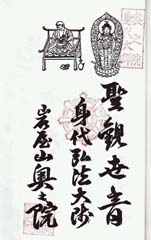 聖観世音
身代弘法大師
岩屋山奥院